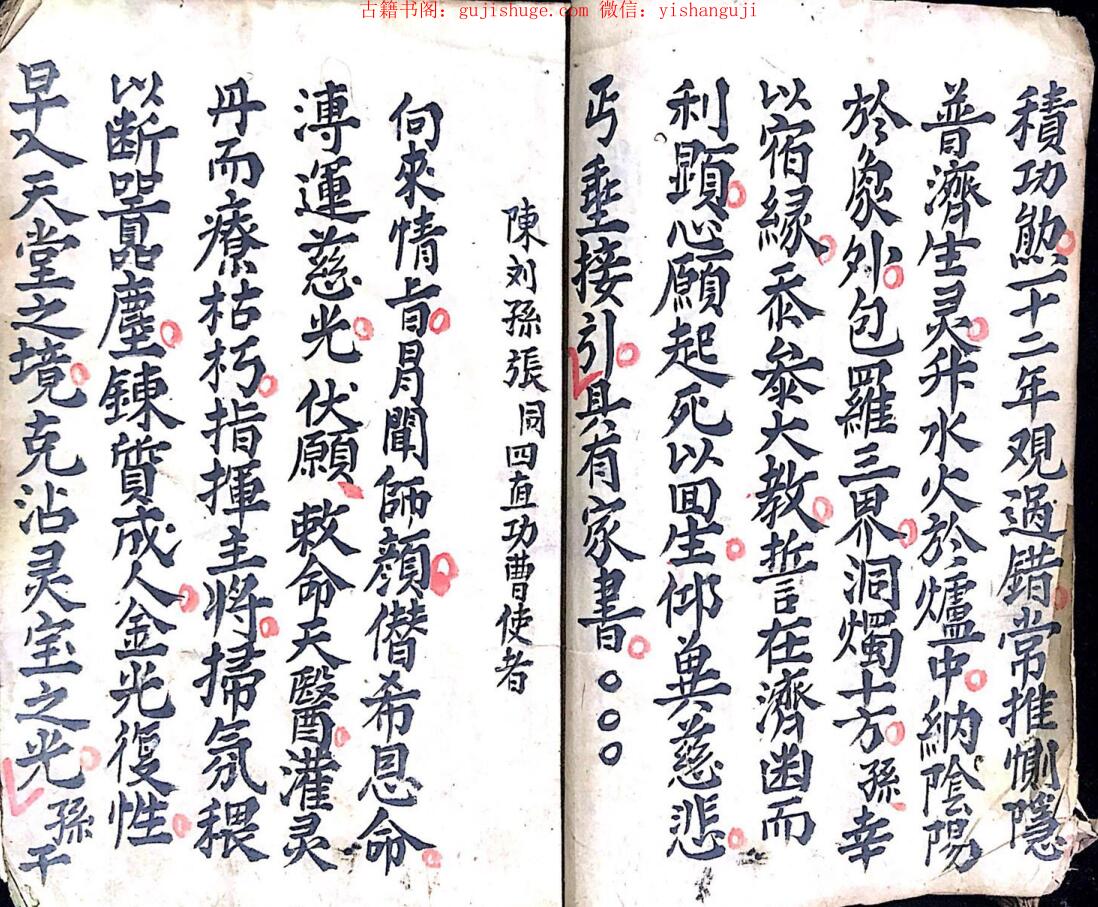 古籍书阁：gujishuge.com 微信：yishanguji
積功勛一十二年观過錯常推惻隱
普濟生灵升水火於爐中納陰陽
於象外包羅三界洞燭十方孫幸
以宿緣忝叅大教誓在濟幽而
利顕心願起死以回生仰兾慈悲
丐垂接引具有家書〇〇〇
陳刘孫張同四直功曹使者
向來情旨冐聞師顔僭希恩命
溥運慈光伏願敕命天醫灌灵
丹而療枯朽指揮主將掃氛穢
以断嚚塵錬質成人金光復性
早入天堂之境克沾灵宝之光孫干